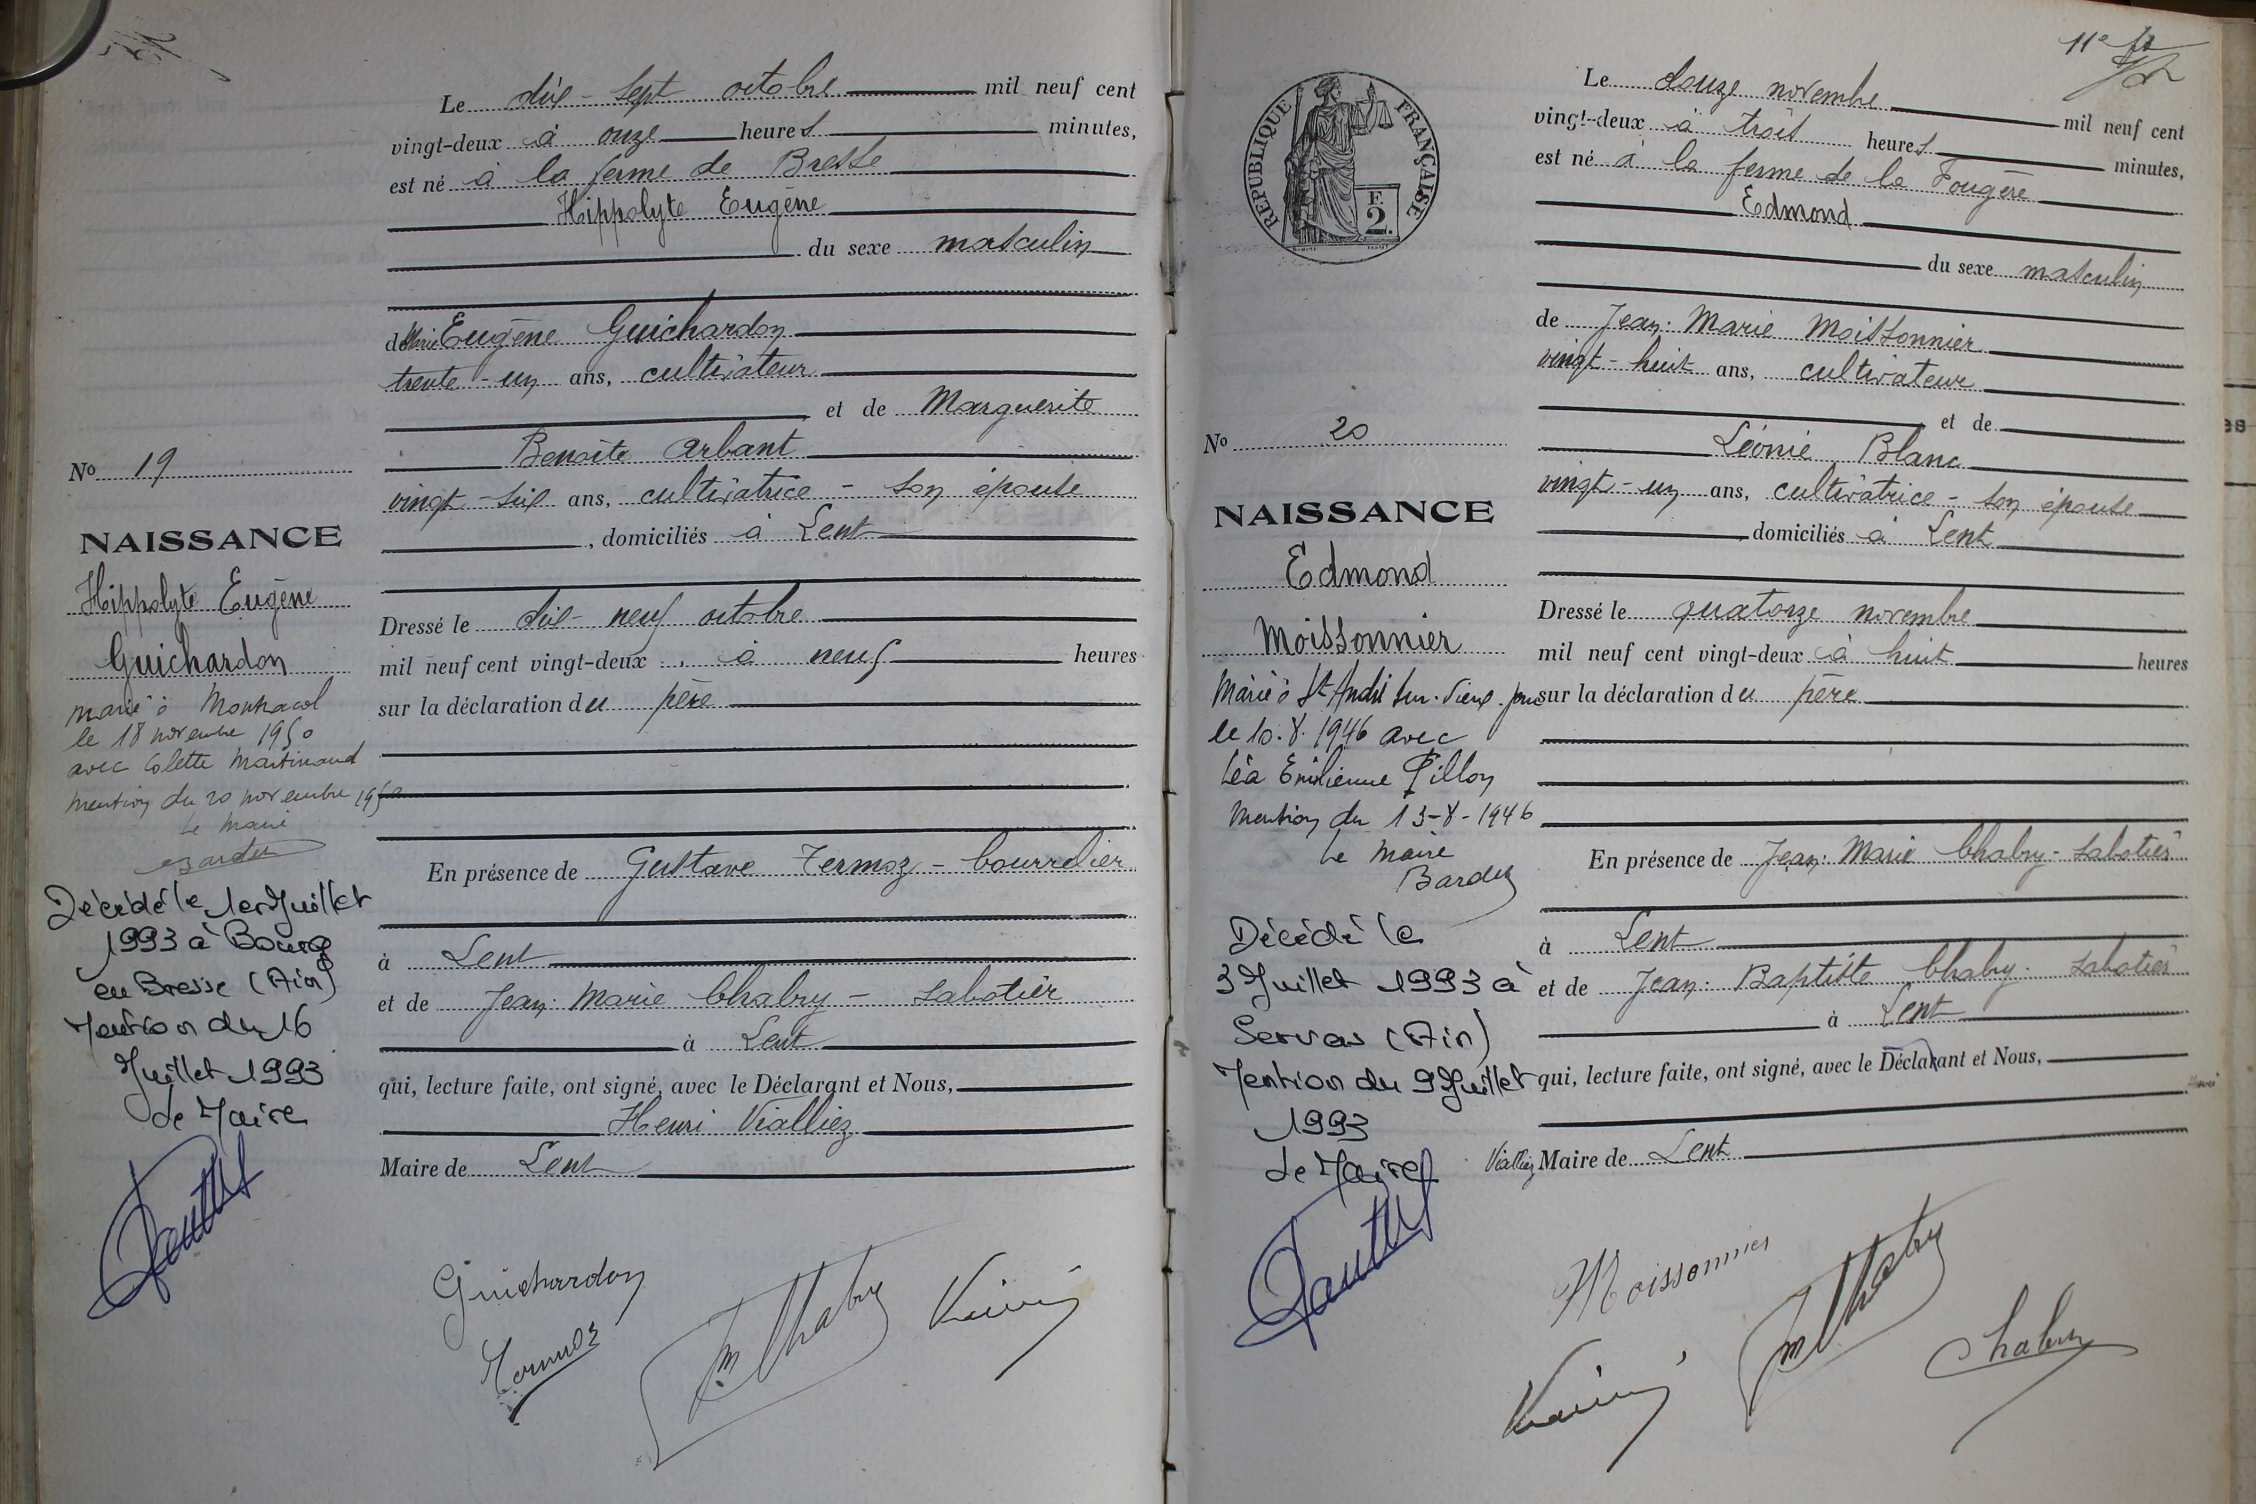 Le dix-sept octobre mil neuf cent
vingt-deux à onze heures minutes,
est né à la ferme de Bresse
Hippolyte Eugène
du sexe masculin
de Marie Eugène Guichardon
trente-un ans, cultivateur
et de Marguerite
Benoîte Arbant
vingt-six ans, cultivatrice - son épouse
, domiciliés à Lent
Dressé le dix-neuf octobre
mil neuf cent vingt-deux à neuf heures
sur la déclaration du père
En présence de Gustave Termoz - bourrelier
à Lent
et de Jean-Marie Chabry - sabotier
à Lent
qui, lecture faite, ont signé, avec le Déclarant et Nous,
Henri Vialliez
Maire de Lent
No 19
NAISSANCE
Hippolyte Eugène
Guichardon
marié à
le 18 novembre 1950
avec Colette Martinand
mention du 20 novembre 1950
Le maire
Bardez
Décédé le 1er Juillet
1993 à Bourg
en Bresse (Ain)
Mention du 16
Juillet 1993
Le Maire
Guichardon
Termoz
Jm Chabry
11e
RÉPUBLIQUE FRANÇAISE
F.
2.
Le douze novembre mil neuf cent
vingt-deux à trois heures minutes,
est né à la ferme de la Fougère
Edmond
du sexe masculin
de Jean-Marie Moissonnier
vingt-huit ans, cultivateur
et de
Léonie Blanc
vingt-un ans, cultivatrice - son épouse
domiciliés à Lent
Dressé le quatorze novembre
mil neuf cent vingt-deux à huit heures
sur la déclaration du père
En présence de Jean-Marie Chabry - sabotier
à Lent
et de Jean-Baptiste Chabry - sabotier
à Lent
qui, lecture faite, ont signé, avec le Déclarant et Nous,
Vialliez Maire de Lent
No 20
NAISSANCE
Edmond
Moissonnier
Marié à St André sur-Vieux-jonc
le 10-8-1946 avec
Léa Emilienne Pillon
Mention du 13-8-1946
Le maire
Bardez
Décédé le
3 Juillet 1993 à
Servas (Ain)
Mention du 9 Juillet
1993
Le Maire
Moissonnier
Jm Chabry
Chabry